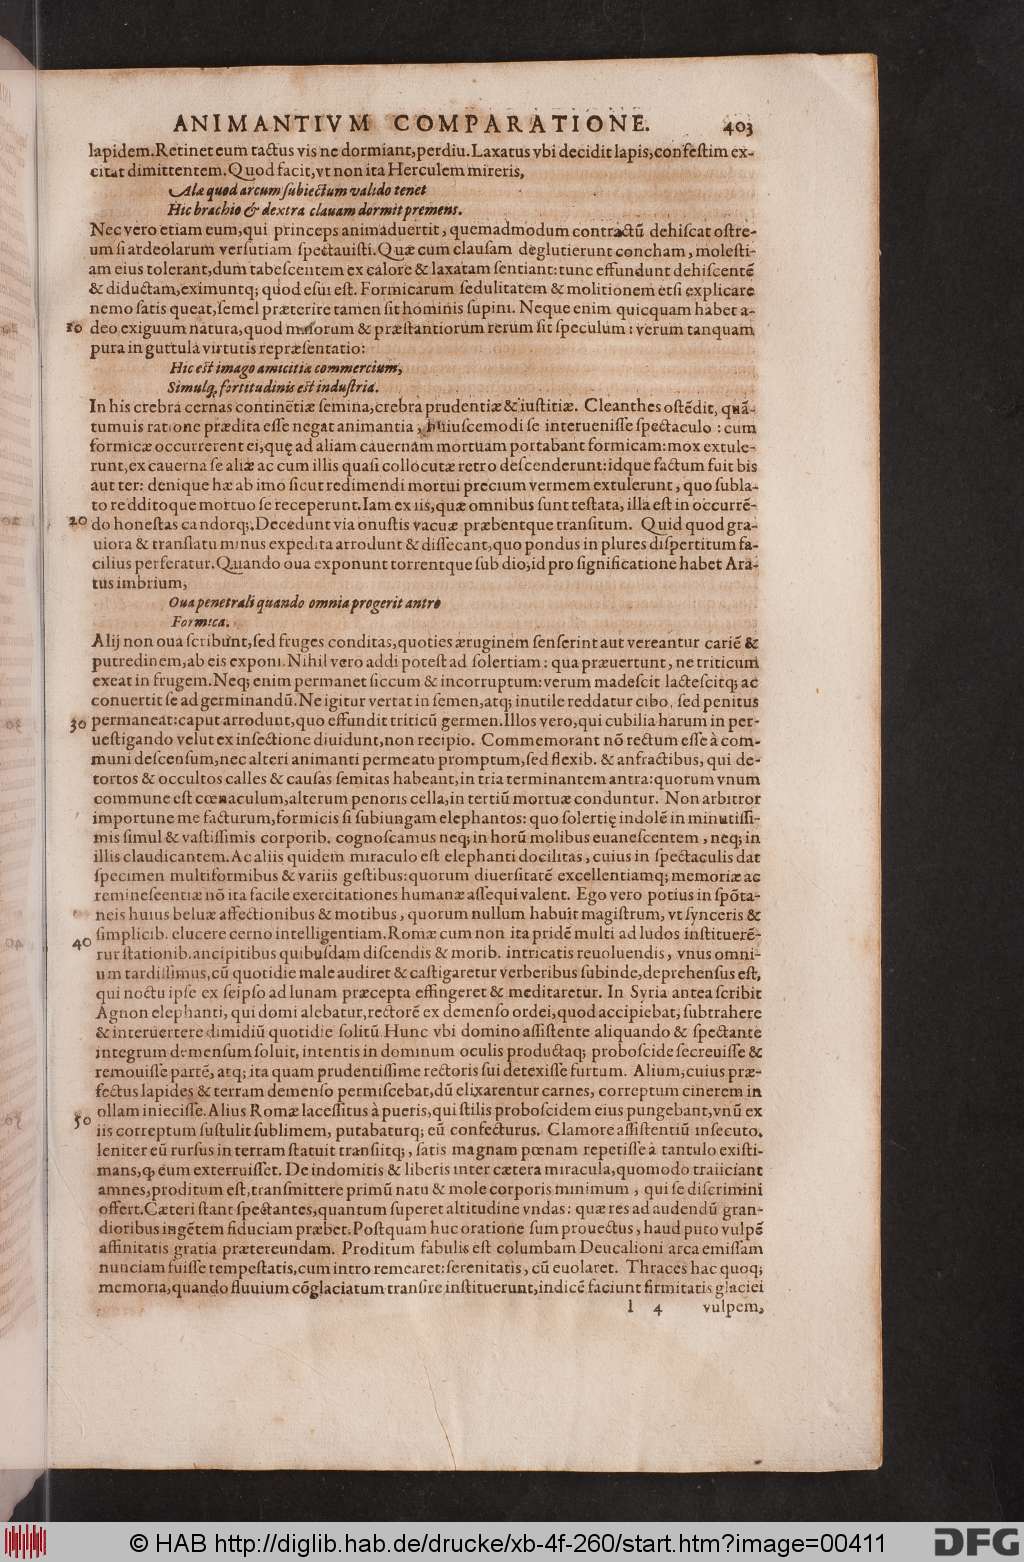 ANIMANTIVM COMPARATIONE. 403
lapidem. Retinet eum tactus vis ne dormiant, perdiu. Laxatus vbi decidit lapis, confestim ex-
citat dimittentem. Quod facit, vt non ita Herculem mireris,
Ala quod arcum subiectum valido tenet
Hic brachio & dextra clauam dormit premens.
Nec vero etiam eum, qui princeps animaduertit, quemadmodum contractũ dehiscat ostre-
um si ardeolarum versutiam spectauisti. Quæ cum clausam deglutierunt concham, molesti-
am eius tolerant, dum tabescentem ex calore & laxatam sentiant: tunc effundunt dehiscentẽ
& diductam, eximuntq; quod esui est. Formicarum sedulitatem & molitionem etsi explicare
nemo satis queat, semel præterire tamen sit hominis supini. Neque enim quicquam habet a-
10 deo exiguum natura, quod maiorum & præstantiorum rerum sit speculum: verum tanquam
pura in guttula virtutis repræsentatio:
Hic est imago amicitiæ commercium,
Simulq; fortitudinis est industria.
In his crebra cernas continẽtiæ semina, crebra prudentiæ & iustitiæ. Cleanthes ostẽdit, quã-
tumuis ratione prædita esse negat animantia, huiuscemodi se interuenisse spectaculo: cum
formicæ occurrerent ei, quę ad aliam cauernam mortuam portabant formicam: mox extule-
runt, ex cauerna se aliæ ac cum illis quasi collocutæ retro descenderunt: idque factum fuit bis
aut ter: denique hæ ab imo sicut redimendi mortui precium vermem extulerunt, quo subla-
to redditoque mortuo se receperunt. Iam ex iis, quæ omnibus sunt testata, illa est in occurrẽ-
20 do honestas candorq;. Decedunt via onustis vacuæ præbentque transitum. Quid quod gra-
uiora & translatu minus expedita arrodunt & dissecant, quo pondus in plures dispertitum fa-
cilius perferatur. Quando oua exponunt torrentque sub dio, id pro significatione habet Ara-
tus imbrium,
Oua penetrali quando omnia progerit antro
Formica.
Alij non oua scribunt, sed fruges conditas, quoties æruginem senserint aut vereantur cariẽ &
putredinem, ab eis exponi. Nihil vero addi potest ad solertiam: qua præuertunt, ne triticum
exeat in frugem. Neq; enim permanet siccum & incorruptum: verum madescit lactescitq; ac
conuertit se ad germinandũ. Ne igitur vertat in semen, atq; inutile reddatur cibo, sed penitus
30 permaneat: caput arrodunt, quo effundit triticũ germen. Illos vero, qui cubilia harum in per-
uestigando velut ex insectione diuidunt, non recipio. Commemorant nõ rectum esse à com-
muni descensum, nec alteri animanti permeatu promptum, sed flexib. & anfractibus, qui de-
tortos & occultos calles & causas semitas habeant, in tria terminantem antra: quorum vnum
commune est cœnaculum, alterum penoris cella, in tertiũ mortuæ conduntur. Non arbitror
importune me facturum, formicis si subiungam elephantos: quo solertię indolẽ in minutissi-
mis simul & vastissimis corporib. cognoscamus neq; in horũ molibus euanescentem, neq; in
illis claudicantem. Ac aliis quidem miraculo est elephanti docilitas, cuius in spectaculis dat
specimen multiformibus & variis gestibus: quorum diuersitatẽ excellentiamq; memoriæ ac
reminescentiæ nõ ita facile exercitationes humanæ assequi valent. Ego vero potius in spõta-
neis huius beluæ affectionibus & motibus, quorum nullum habuit magistrum, vt synceris &
40 simplicib. elucere cerno intelligentiam. Romæ cum non ita pridẽ multi ad ludos instituerẽ-
tur stationib. ancipitibus quibusdam discendis & morib. intricatis reuoluendis, vnus omni-
um tardissimus, cũ quotidie male audiret & castigaretur verberibus subinde, deprehensus est,
qui noctu ipse ex seipso ad lunam præcepta effingeret & meditaretur. In Syria antea scribit
Agnon elephanti, qui domi alebatur, rectorẽ ex demenso ordei, quod accipiebat, subtrahere
& interuertere dimidiũ quotidie solitũ. Hunc vbi domino assistente aliquando & spectante
integrum demensum soluit, intentis in dominum oculis productaq; proboscide secreuisse &
remouisse partẽ, atq; ita quam prudentissime rectoris sui detexisse furtum. Alium, cuius præ-
fectus lapides & terram demenso permiscebat, dũ elixarentur carnes, correptum cinerem in
ollam iniecisse. Alius Romæ lacessitus à pueris, qui stilis proboscidem eius pungebant, vnũ ex
50 iis correptum sustulit sublimem, putabaturq; eũ confecturus. Clamore assistentiũ insecuto,
leniter eũ rursus in terram statuit transiitq;, satis magnam pœnam repetisse à tantulo existi-
mans, ꝙ eum exterruisset. De indomitis & liberis inter cætera miracula, quomodo traiiciant
amnes, proditum est, transmittere primũ natu & mole corporis minimum, qui se discrimini
offert. Cæteri stant spectantes, quantum superet altitudine vndas: quæ res ad audendũ gran-
dioribus ingẽtem fiduciam præbet. Postquam huc oratione sum prouectus, haud puto vulpẽ
affinitatis gratia prætereundam. Proditum fabulis est columbam Deucalioni arca emissam
nunciam fuisse tempestatis, cum intro remearet: serenitatis, cũ euolaret. Thraces hac quoq;
memoria, quando fluuium cõglaciatum transire instituerunt, indicẽ faciunt firmitatis glaciei
l 4 vulpem,
© HAB http://diglib.hab.de/drucke/xb-4f-260/start.htm?image=00411
DFG